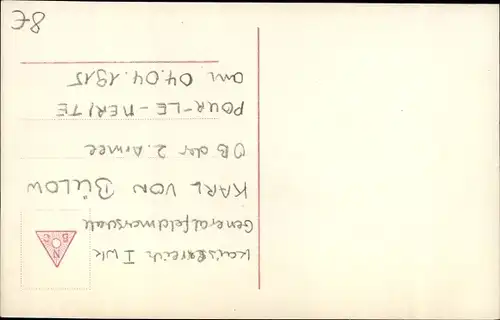 Kaiserreich I Wk
Generalfeldmarschall
KARL VON BÜLOW
OB der 2. Armee
POUR-LE-MERITE
am 04.04.1915
8€
N
B C